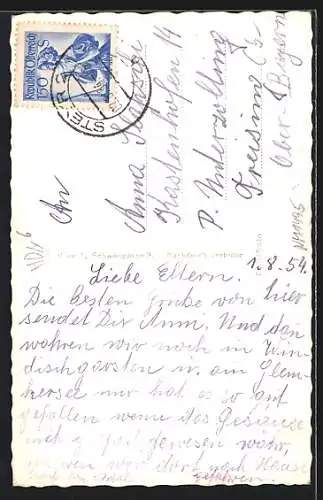 REPUBLIK ÖSTERREICH
1.50 S
STEYR
An
Anna
Kastenhofen 14
P. Unterzolling
Freising Ob
Ober-Bayern
1.8.54.
Liebe Eltern.
Die besten Grüße von hier
sendet Dir Anni. Und dan
wahren wir noch in Win
dischgarsten u. am Glein
kersee mir hat es so gut
gefallen wenn das Gesäuse
nich g gewesen wahr,
wir dort nach Hause
gefahren.